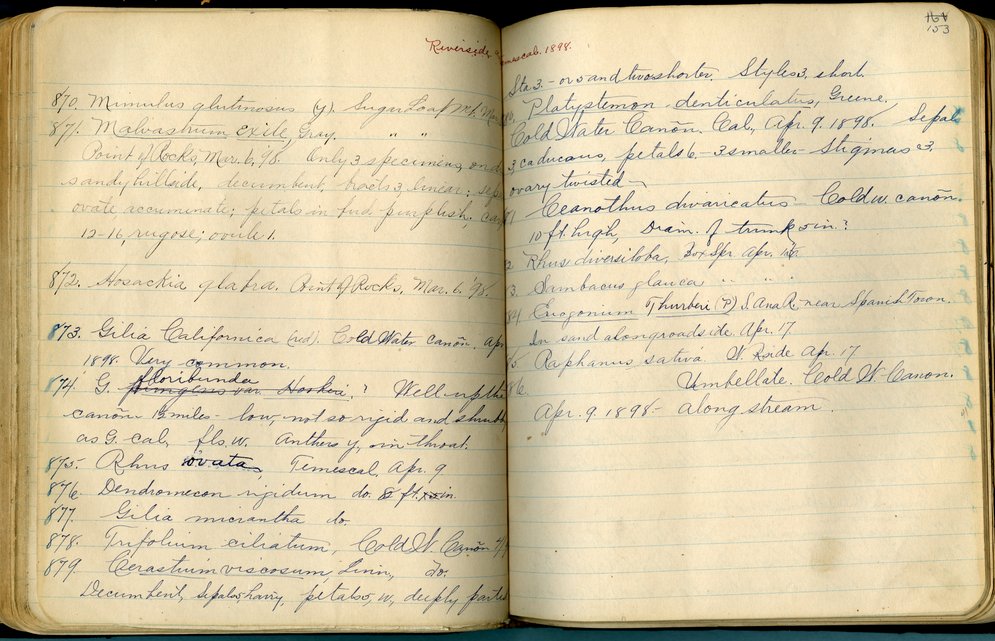 Riverside & Temescal. 1898.
870. Mimulus glutinosus (y). Sugar Loaf Mt. Mar
871. Malvastrum exile, Gray, " "
Point of Rocks, Mar. 6, '98. Only 3 specimens, on d
sandy hillside, decumbent, bracts 3, linear; sep
ovate accuminate; petals in fud. purplish, car
12-16, rugose; ovule 1.
872. Hosackia glabra. Point of Rocks, Mar. 6. '98.
873. Gilia Californica (red). Cold Water cañon. Apr
1898. Very common.
874. G. floribunda ? Well up the
cañon 1½ miles - low, not so rigid and shrubb
as G. cal, fls. w. Anthers y, in throat.
875. Rhus ovata, Temescal, Apr. 9
876. Dendromecon rigidum do. 8 ft. x in.
877. Gilia micrantha do.
878. Trifolium ciliatum, Cold W. Cañon
879. Cerastium viscosum, Linn, Do.
Decumbent, sepals hairy, petals 5, w, deeply parted
164
153
Sta. 3 - or 5 and two shorter. Styles 3, short.
Platystemon denticulatus, Greene,
Cold Water Cañon, Cal., Apr. 9. 1898. Sepals
3, caducous, petals 6 - 3 smaller - Stigmas 3,
ovary twisted -
81 Ceanothus divaricatus - Cold W. cañon.
10 ft. high, Diam. of trunk in. ?
2. Rhus diversiloba, Box Spr. Apr. 12
3. Sambucus glauca " " "
84. Eriogonum Thurberi (?) S. Ana R. near Spanish Town.
In sand along roadside. Apr. 17
85. Raphanus sativa. W. Rside Ap. 17
86. Umbellate. Cold W. Canon.
Apr. 9 1898 - along stream.